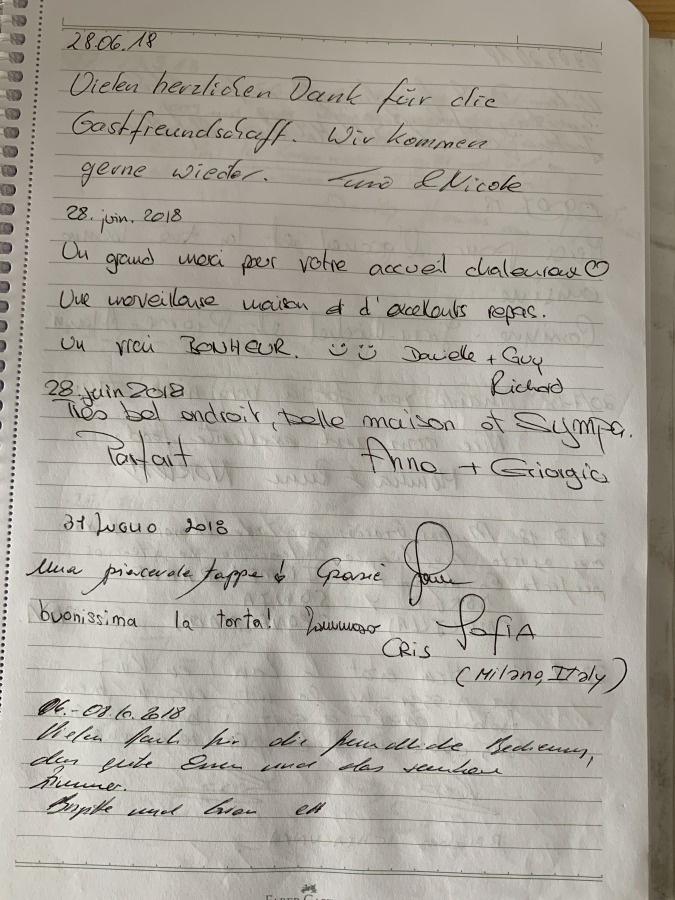 28.06.18
Vielen herzlichen Dank für die
Gastfreundschaft. Wir kommen
gerne wieder. & Nicole
28. juin. 2018
Un grand merci pour votre accueil chaleureux
Une merveilleuse maison et d'excellents repas.
Un vrai BONHEUR. Danielle + Guy
Richard
28 juin 2018
Très bel endroit, belle maison et Sympa.
Parfait Anna + Giorgio
31 LUGLIO 2018
Una piacevole tappa! Grazie
buonissima la torta! Tommaso SofiA
CRIS
(Milano, Italy)
06.-08.10.2018
Vielen Dank für die freundliche Bedienung,
das gute Essen und das
Zimmer.
Brigitte und